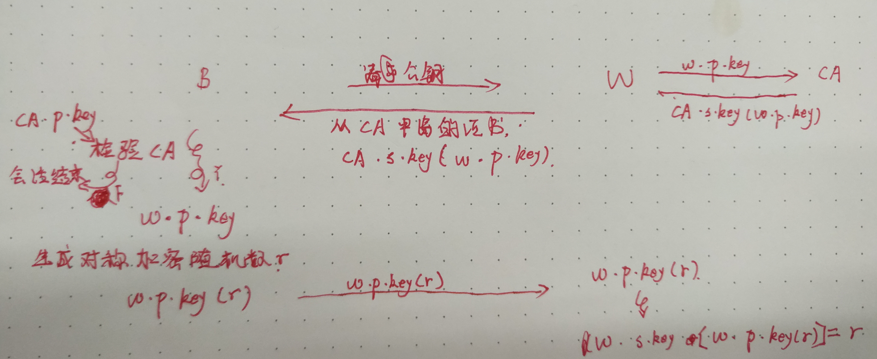 B
请求公钥
W
w.p.key
CA
CA.s.key(w.p.key)
CA.p.key
从CA申请的证书.
CA.s.key(w.p.key)
检验CA
T
会话结束
F
w.p.key
生成对称加密随机数r
w.p.key(r)
w.p.key(r)
w.p.key(r)
w.s.key[w.p.key(r)]=r